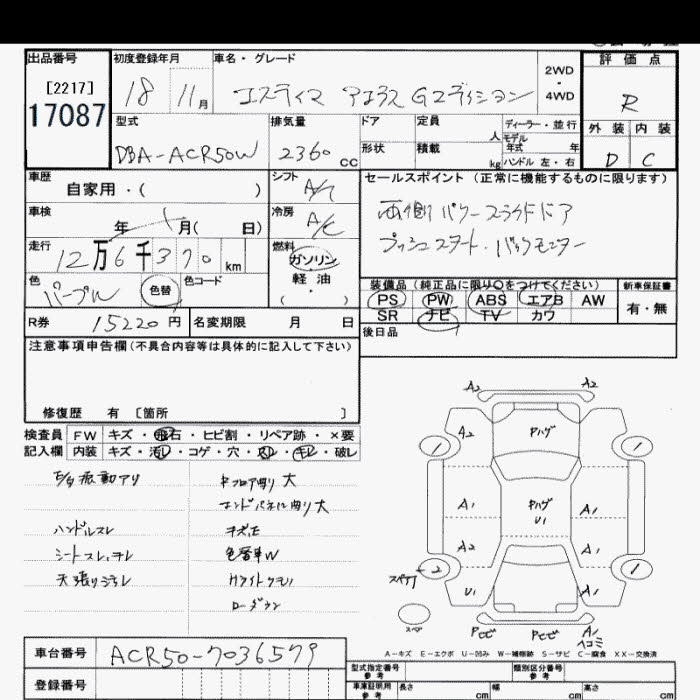 出品番号 初度登録年月 車名・グレード 2WD・4WD 評価点
[2217]
17087
18 11月 エスティマ アエラス Gエディション R
型式 排気量 ドア 定員 人 ディーラー・並行 外装 内装
モデル年式 年
DBA-ACR50W 2360cc 形状 積載 kg ハンドル 左・右 D C
車歴 シフト セールスポイント (正常に機能するものに限ります)
自家用・( ) A/T
車検 冷房 両側パワースライドドア
年 月( 日) A/C
プッシュスタート・バックモニター
走行 燃料
12万6千370km ガソリン
軽油
・( )
色 色替 色コード
パープル
装備品(純正品に限り○をつけてください) 新車保証書
PS PW ABS エアB AW 有・無
SR ナビ TV カワ
R券 15220円 名変期限 月 日
後日品
注意事項申告欄(不具合内容等は具体的に記入して下さい)
修復歴 有 〔箇所 〕
検査員 FW キズ・飛石・ヒビ割・リペア跡・×要
記入欄 内装 キズ・汚レ・コゲ・穴・スレ・キレ・破レ
振動アリ 大
大
ハンドルスレ
シートスレ、
天張り汚レ
ローダウン
A2 A2
A2 Pハゲ
1 1
A1 Pハゲ A1
U1
A2 A1
2 1
U1 A1
スペア
A1
ヘコミ
A-キズ E-エクボ U-凹み W-補修跡 S-サビ C-腐食 XX-交換済
車台番号 ACR50-7036579
登録番号
型式指定番号 参考 類別区分番号 参考
車庫証明用 参考 長さ cm 幅 cm 高さ cm